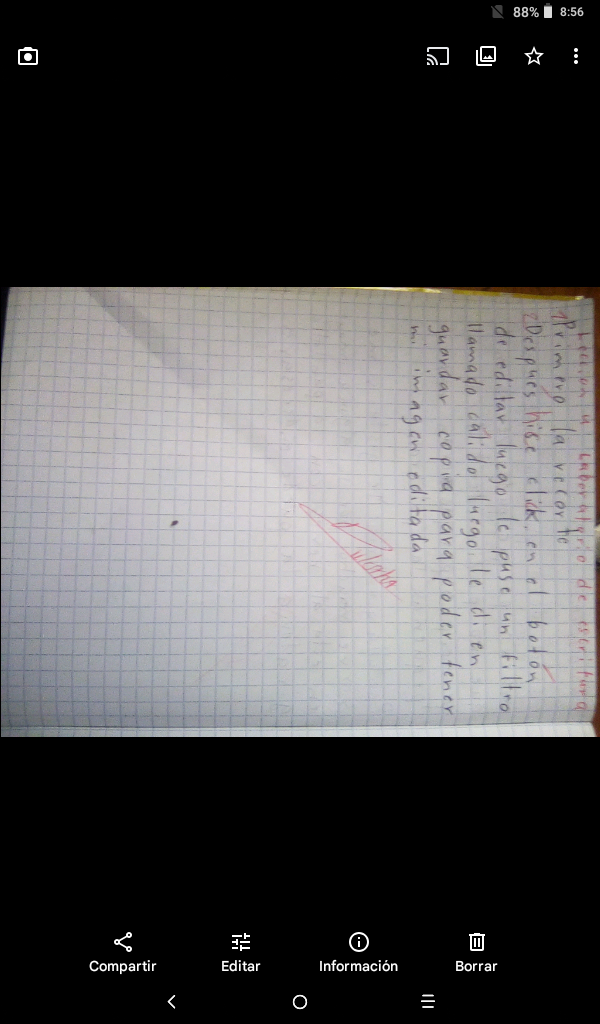 88% 8:56
Lección 4 Laboratorio de escritura
1Primero la recorte
2Después hise click en el botón
de editar luego le puse un filtro
llamado cálido luego le di en
guardar copia para poder tener
mi imagen editada
Compartir Editar Información Borrar